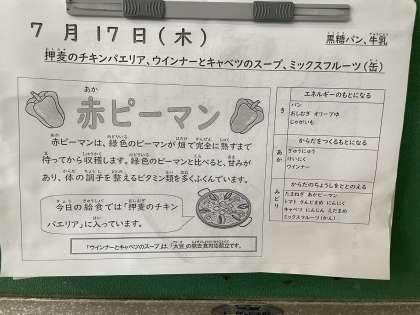 7月17日(木)
黒糖パン、牛乳
押麦のチキンパエリア、ウインナーとキャベツのスープ、ミックスフルーツ(缶)
赤ピーマン
赤ピーマンは、緑色のピーマンが畑で完全に熟すまで
待ってから収穫します。緑色のピーマンと比べると、甘みが
あり、体の調子を整えるビタミン類を多くふくんでいます。
今日の給食では「押麦のチキン
パエリア」に入っています。
「ウインナーとキャベツのスープ」は、「大豆」の除去食対応献立です。
エネルギーのもとになる
き
パン
おしむぎ オリーブゆ
じゃがいも
からだをつくるもとになる
あか
ぎゅうにゅう
けいにく
ウインナー
からだのちょうしをととのえる
みどり
たまねぎ あかピーマン
トマト さんどまめ にんにく
キャベツ にんじん えだまめ
ミックスフルーツ(かん)